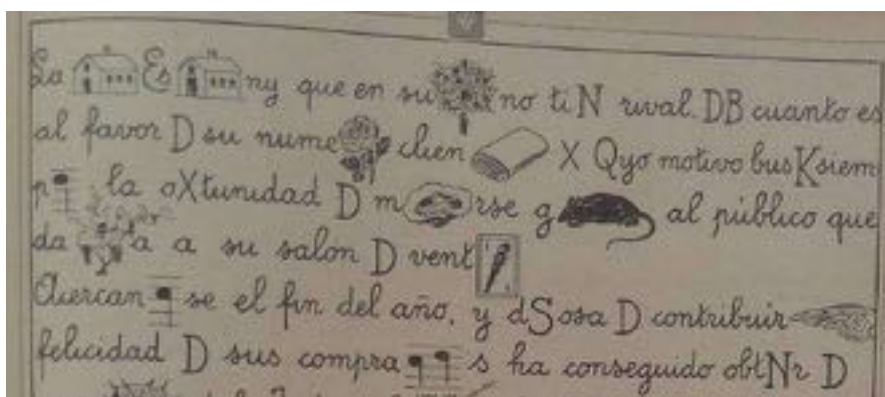 La Es ny que en su no ti N rival. DB cuanto es
al favor D su nume clien X Qyo motivo bus K siem
p la oXtunidad D m rse g al público que
da a a su salon D vent
Acercan se el fin del año, y dSosa D contribuir
felicidad D sus compra s ha conseguido obtNr D